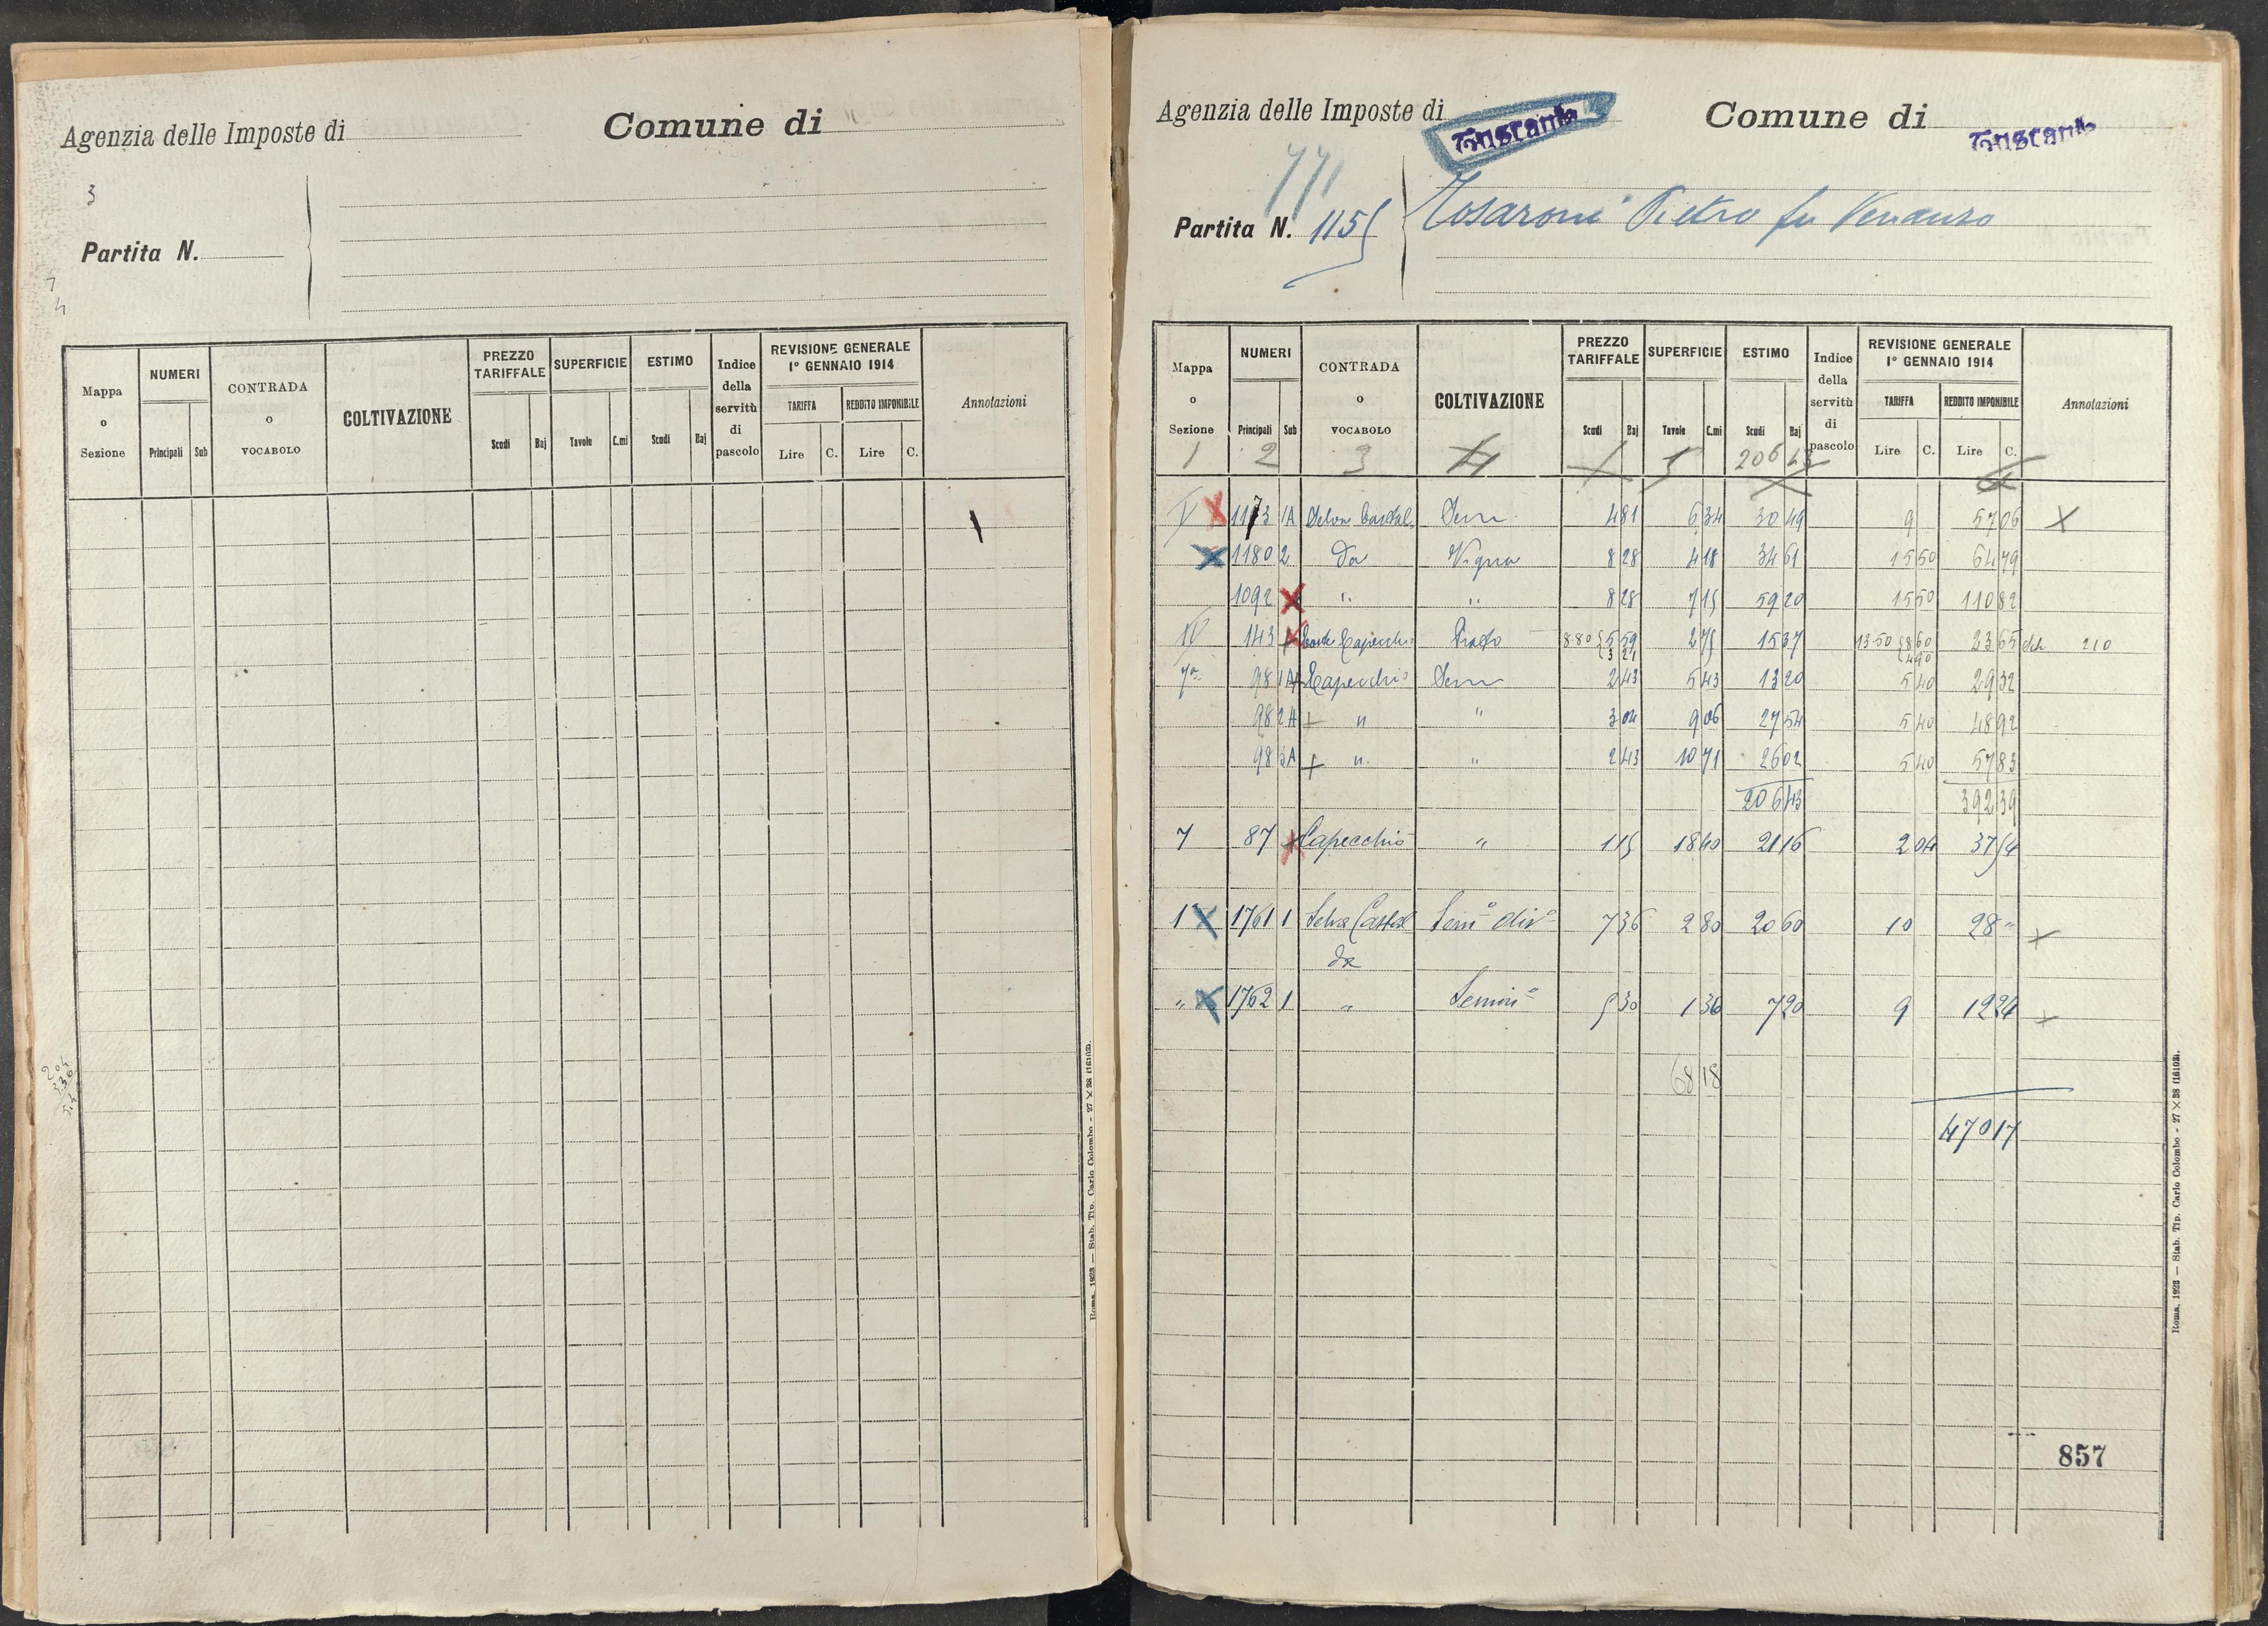 Agenzia delle Imposte di Comune di
3
Partita N.
Mappa o Sezione NUMERI Principali Sub CONTRADA o VOCABOLO COLTIVAZIONE PREZZO TARIFFALE Scudi Baj SUPERFICIE Tavole C.mi ESTIMO Scudi Baj Indice della servitù di pascolo REVISIONE GENERALE 1° GENNAIO 1914 TARIFFA Lire C. REDDITO IMPONIBILE Lire C. Annotazioni
Roma, 1923 — Stab. Tip. Carlo Colombo - 27 × 38 (16103).
Agenzia delle Imposte di Tuscania Comune di Tuscania
771
Partita N. 1155 Tosaroni Pietro fu Venanzo
Mappa o Sezione NUMERI Principali Sub CONTRADA o VOCABOLO COLTIVAZIONE PREZZO TARIFFALE Scudi Baj SUPERFICIE Tavole C.mi ESTIMO Scudi Baj Indice della servitù di pascolo REVISIONE GENERALE 1° GENNAIO 1914 TARIFFA Lire C. REDDITO IMPONIBILE Lire C. Annotazioni
1 2 3 4 5 206 43 6
V X 1173 1A Selva Castel. Sem. 4 81 6 34 30 49 9 57 06 X
X 1180 2 da Vigna 8 28 4 18 34 61 15 50 64 79
1092 X " " 8 28 7 15 59 20 15 50 110 82
143 X Capecchio Prato 8.80 { 5 59 3 21 2 75 15 37 13.50 { 8 60 4 90 23 65 210
7a 98 1A + Capecchio Sem 2 43 5 43 13 20 5 40 29 32
98 2A + " " 3 04 9 06 27 54 5 40 48 92
98 3A + " " 2 43 10 71 26 02 5 40 57 83
206 43 392 39
7 87 X Capecchio " 1 15 18 40 21 16 2 04 37 54
1 X 1761 1 Selva Castel Semo divo 7 36 2 80 20 60 10 28 " +
da
" X 1762 1 " Semino 5 30 1 36 7 20 9 12 24 +
68 18
470 17
857
Roma, 1923 — Stab. Tip. Carlo Colombo - 27 × 38 (16103).